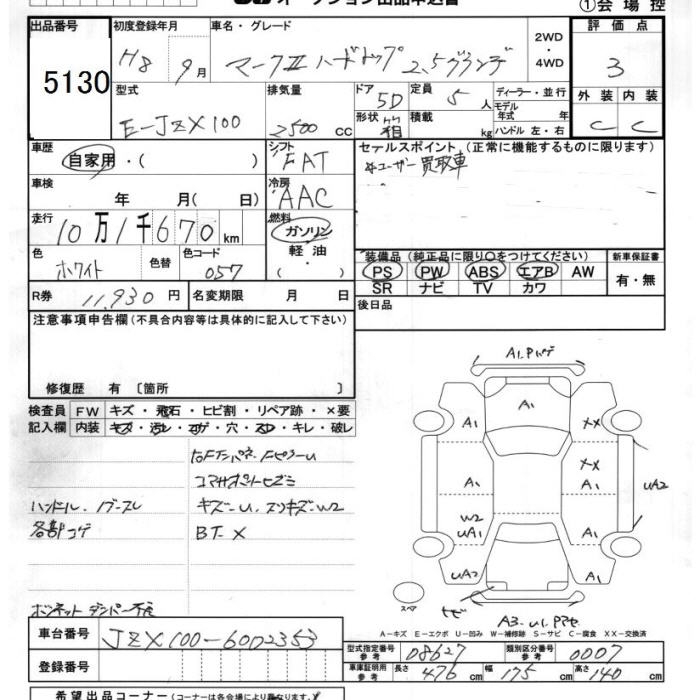 ①会場控
出品番号 初度登録年月 車名・グレード 2WD・4WD 評価点
5130 H8年9月 マークⅡ ハードトップ 2.5グランデ 3
型式 排気量 ドア 5D 定員 5人 ディーラー・並行 外装 内装
E-JZX100 2500cc 形状 箱 積載 kg モデル年式 年 ハンドル 左・右 C C
車歴 シフト セールスポイント (正常に機能するものに限ります)
自家用・( ) FAT ユーザー買取車
車検 冷房
年 月( 日) AAC
走行 燃料
10万1千670km ガソリン
色 色替 色コード 軽油 装備品 (純正品に限り○をつけてください) 新車保証書
ホワイト 057 ( ) PS PW ABS エアB AW 有・無
R券 11,930円 名変期限 月 日 SR ナビ TV カワ
注意事項申告欄(不具合内容等は具体的に記入して下さい) 後日品
修復歴 有 〔箇所 〕
検査員 FW キズ・飛石・ヒビ割・リペア跡・×要
記入欄 内装 キズ・汚レ・コゲ・穴・スレ・キレ・破レ
コアサポートヒズミ
ハンドル、ノブスレ キズ-U、スリキズW2
各部コゲ BT-X
ボンネットダンパー不良
A1
A1 XX
XX
A1 A1 UA2
W2
UA1 A1
UA2 A1
スペア
A-キズ E-エクボ U-凹み W-補修跡 S-サビ C-腐食 XX-交換済
車台番号 JZX100-6002353
登録番号
型式指定番号 参考 08627 類別区分番号 参考 0007
車庫証明用 参考 長さ 476cm 幅 175cm 高さ 140cm
希望出品コーナー(コーナーは各会場により異なります。)